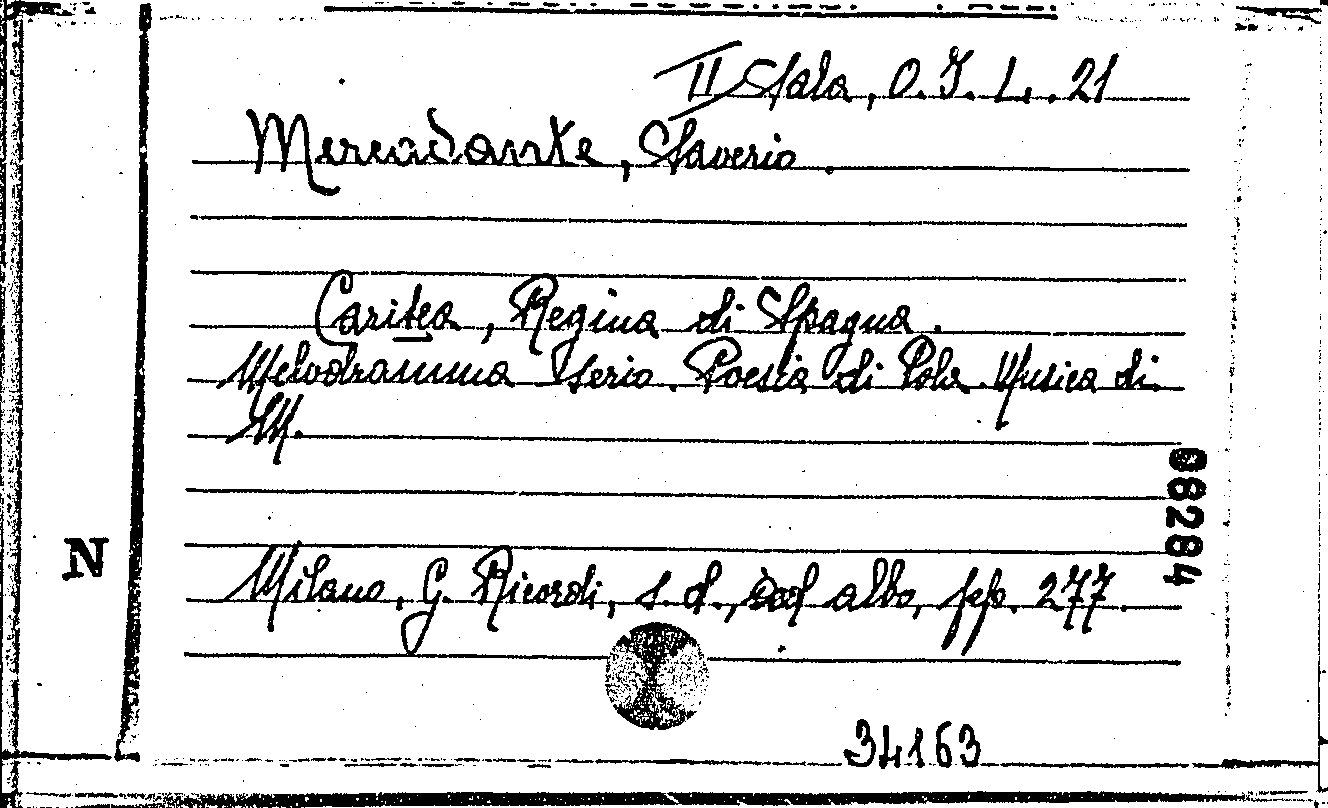 II Sala, O. J. L. 21
Mercadante, Saverio.
Caritea, Regina di Spagna.
Melodramma serio. Poesia di Pola. Musica di
M.
08284
N
Milano, G. Ricordi, s. d., albo, pp. 277.
34163